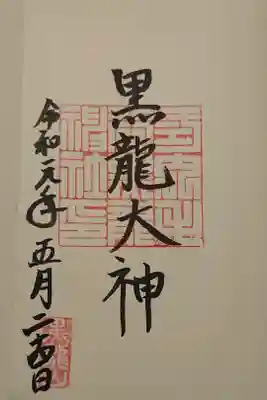 黒龍大神
令和元年五月二十四日